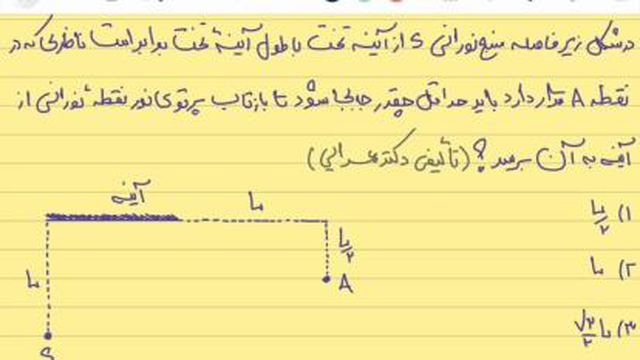 درشکل زیر فاصله منبع نورانی S از آینه تخت با طول آینهٔ تخت برابر است ناظری که در
نقطه A قرار دارد باید حداقل چقدر جابجا شود تا بازتاب پرتوی نور نقطهٔ نورانی از
آینه به آن برسد؟ (تألیفی دکتر)
۱) L/۲
۲) L
۳) L √۲/۲
آینه
L
L/۲
L
A
S